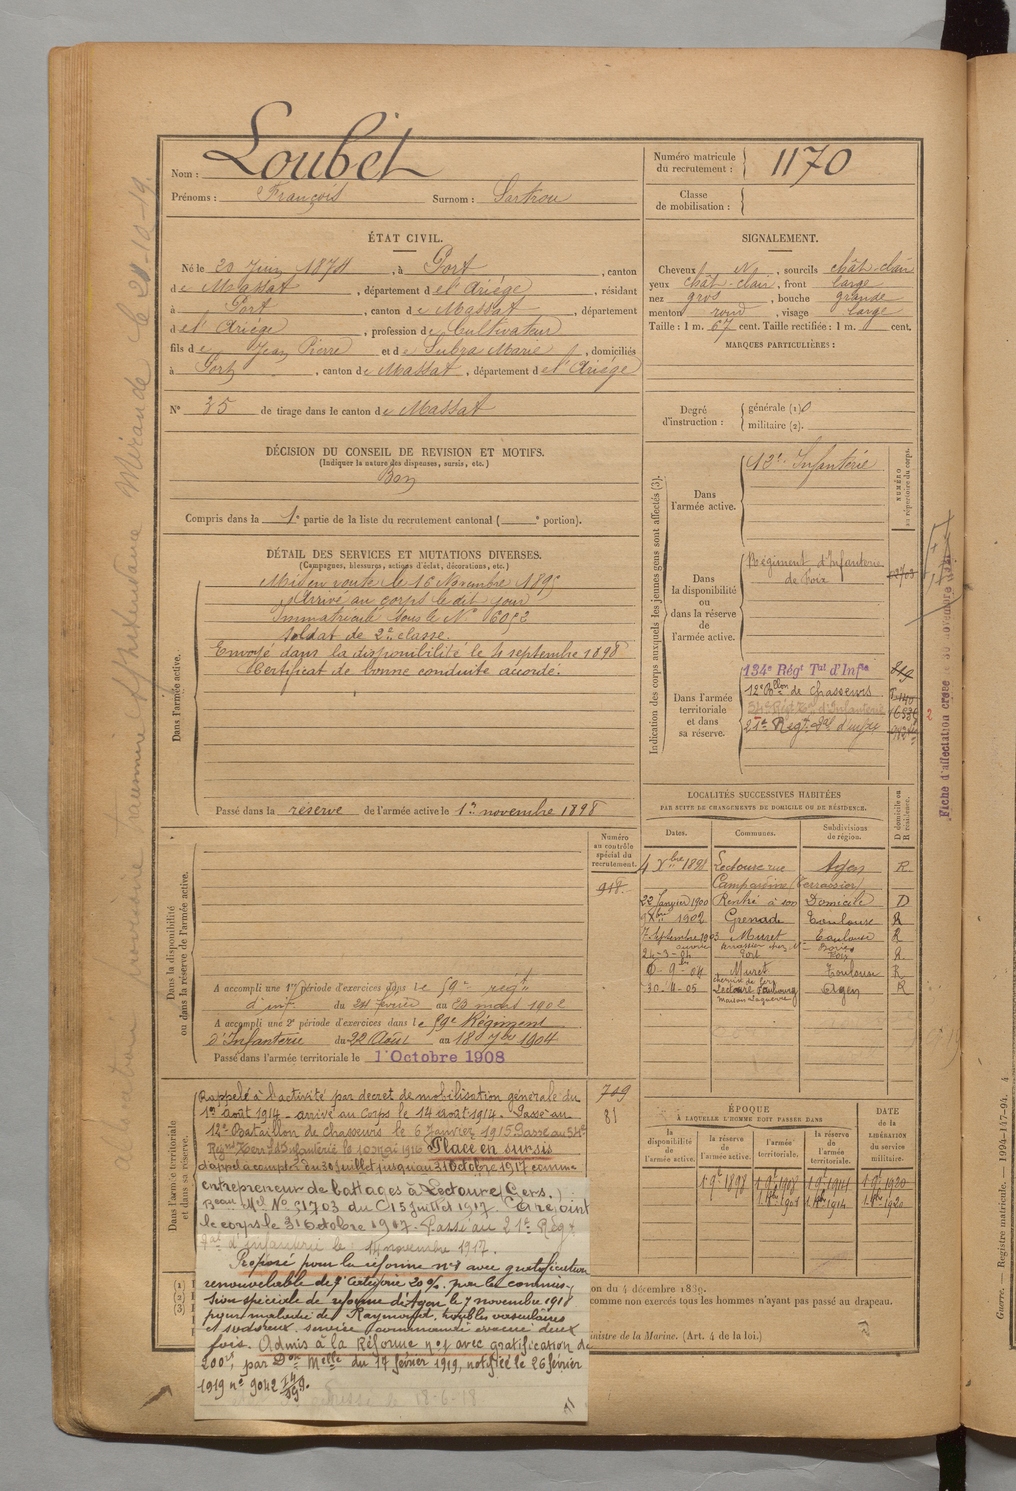 Nom : Loubet
Prénoms : François Surnom : Sartrou
Numéro matricule du recrutement : 1170
Classe de mobilisation :
ÉTAT CIVIL.
Né le 20 Juin 1874, à Port, canton
de Massat, département de l'Ariège, résidant
à Port, canton de Massat, département
de l'Ariège, profession de Cultivateur
fils de Jean Pierre et de Subra Marie, domiciliés
à Port, canton de Massat, département de l'Ariège
N° 35 de tirage dans le canton de Massat
SIGNALEMENT.
Cheveux N, sourcils chât-clair
yeux chât-clair, front large
nez gros, bouche grande
menton rond, visage large
Taille : 1 m. 67 cent. Taille rectifiée : 1 m. cent.
MARQUES PARTICULIÈRES :
Degré d'instruction : générale (1) 0
militaire (2).
DÉCISION DU CONSEIL DE REVISION ET MOTIFS.
(Indiquer la nature des dispenses, sursis, etc.)
Bon
Compris dans la 1e partie de la liste du recrutement cantonal ( e portion).
DÉTAIL DES SERVICES ET MUTATIONS DIVERSES.
(Campagnes, blessures, actions d'éclat, décorations, etc.)
Dans l'armée active.
Mis en route le 16 Novembre 1895
Arrivé au corps le dit jour
Immatriculé sous le N°
soldat de 2e classe.
Envoyé dans la disponibilité le septembre 1898
Certificat de bonne conduite accordé.
Passé dans la réserve de l'armée active le 1er novembre 1898
Indication des corps auxquels les jeunes gens sont affectés (3).
NUMÉRO au répertoire du corps.
Dans l'armée active.
Infanterie
Dans la disponibilité ou dans la réserve de l'armée active.
Régiment d'Infanterie
de Foix
Dans l'armée territoriale et dans sa réserve.
134e Régt Tal d'Infie
12e Bllon de chasseurs
34e Rég Tal d'Infanterie
21e Régt d'infie
Fiche d'affectation créée le 30 novembre
LOCALITÉS SUCCESSIVES HABITÉES
PAR SUITE DE CHANGEMENTS DE DOMICILE OU DE RÉSIDENCE.
Dates. Communes. Subdivisions de région. D domicile ou R résidence.
Lectoure rue Agen R
Campardine (Terrassier)
22 Janvier 1900 Rentré à son Domicile D
1902 Grenade Toulouse R
7 Septembre 1903 Muret Toulouse R
24-3-04 Port Foix R
04 Muret Toulouse R
30. 05 Lectoure Faubourg Agen R
Dans la disponibilité ou dans la réserve de l'armée active.
Numéro au contrôle spécial du recrutement.
918
A accompli une 1re période d'exercices dans le 59e régt
d'inf. du 24 février au 23 mars 1902
A accompli une 2e période d'exercices dans le 59e Régiment
d'Infanterie du 22 Août au 18 7bre 1904
Passé dans l'armée territoriale le 1 Octobre 1908
Dans l'armée territoriale et dans sa réserve.
Rappelé à l'activité par décret de mobilisation générale du
1er août 1914 - arrivé au Corps le 14 août 1914. Passé au
12e Bataillon de chasseurs le 6 Janvier 1915 Passé au 34e
Régt Terral d'Infanterie le 10 mai 1916 Placé en sursis
d'appel à compter du 30 juillet jusqu'au 31 Octobre 1917 comme
entrepreneur de battages à Lectoure (Gers.)
du 15 juillet 1917. a rejoint
le corps le 31 Octobre 1917. Passé au 21e Régt
d'infanterie le 14 novembre 1917.
Proposé pour la réforme n°1 avec gratification
renouvelable de 7e Catégorie 20%. par la commis-
sion spéciale de réforme d'Agen le 7 novembre 1918
pour maladie de Raynaud, troubles vasculaires
et sudoraux, service commandé évacué deux
fois. Admis à la Réforme n°1 avec gratification de
200f, par Don Melle du 17 février 1919, notifiée le 26 février
1919 n° 9042
81
ÉPOQUE
À LAQUELLE L'HOMME DOIT PASSER DANS
DATE DE LA LIBÉRATION DU SERVICE MILITAIRE.
la disponibilité de l'armée active. la réserve de l'armée active. l'armée territoriale. la réserve de l'armée territoriale.
on du 4 décembre 1889.
comme non exercés tous les hommes n'ayant pas passé au drapeau.
inistre de la Marine. (Art. 4 de la loi.)
Guerre. — Registre matricule. — 1994-147-94. 4.